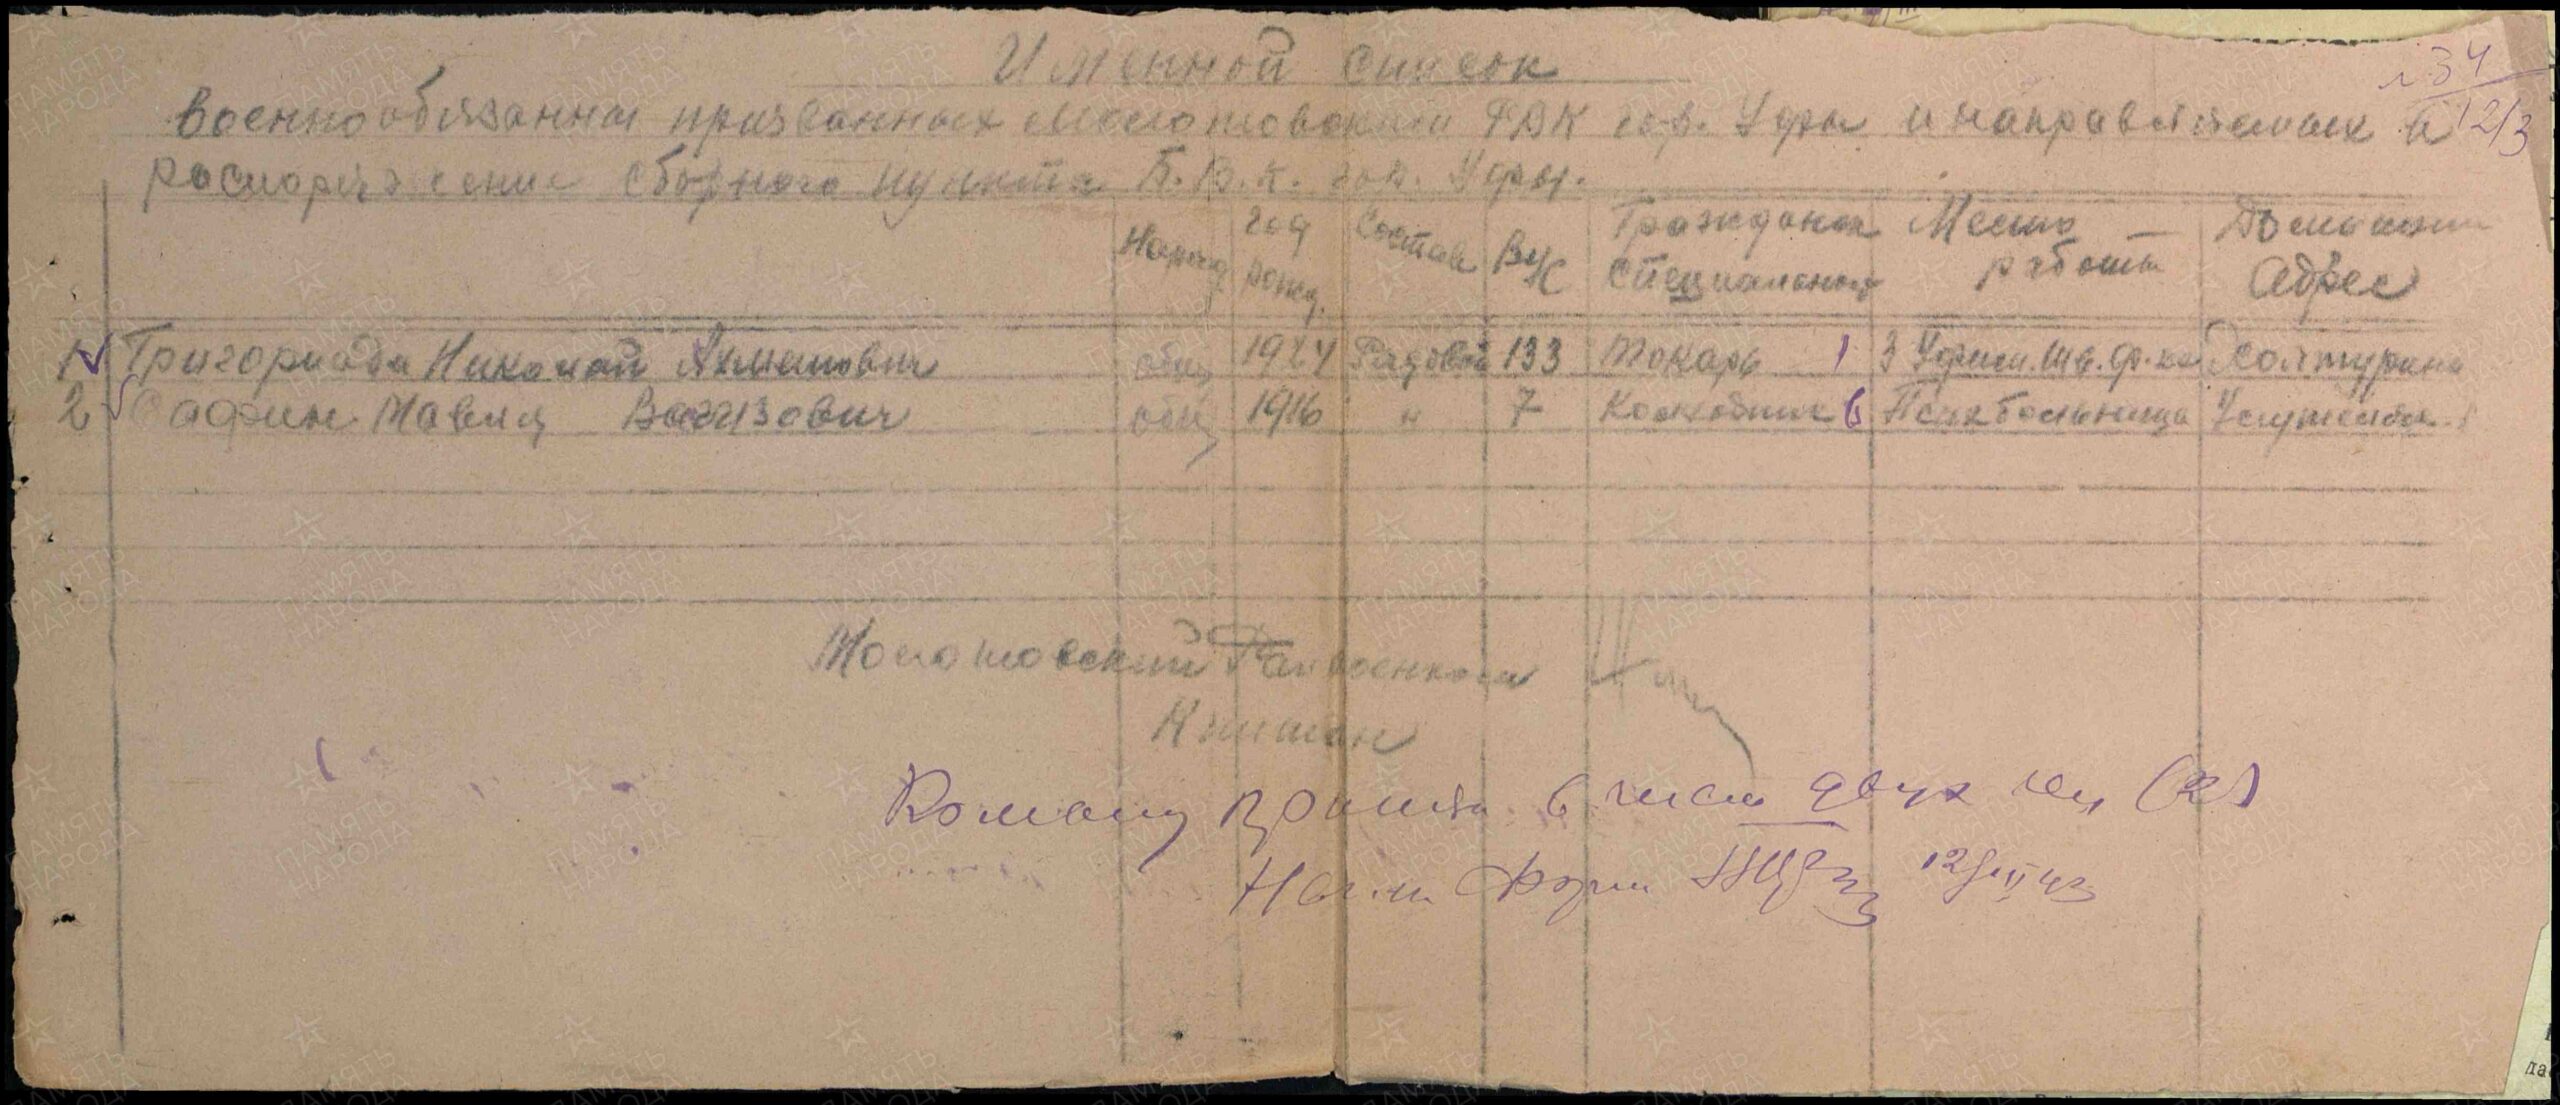 Именной список
Военнообязанных призванных Молотовским РВК гор. Уфы и направляемых в
распоряжение сборного пункта Б.В.К. гор. Уфы.
№ 34
12/3
Народ год рожд. Состав ВУС Гражданск специальност Место работы Домашний Адрес
1 Григориади Николай общ 1924 Рядовой 133 токарь 1 3 Уфим. шв. ф-ка Халтурина
2 Сафин Мавляд Вагизович общ 1916 " 7 6 Псих больница
Молотовский Райвоенком
Капитан
Команду принял в числе двух чел (2)
12/III 43
ПАМЯТЬ НАРОДА